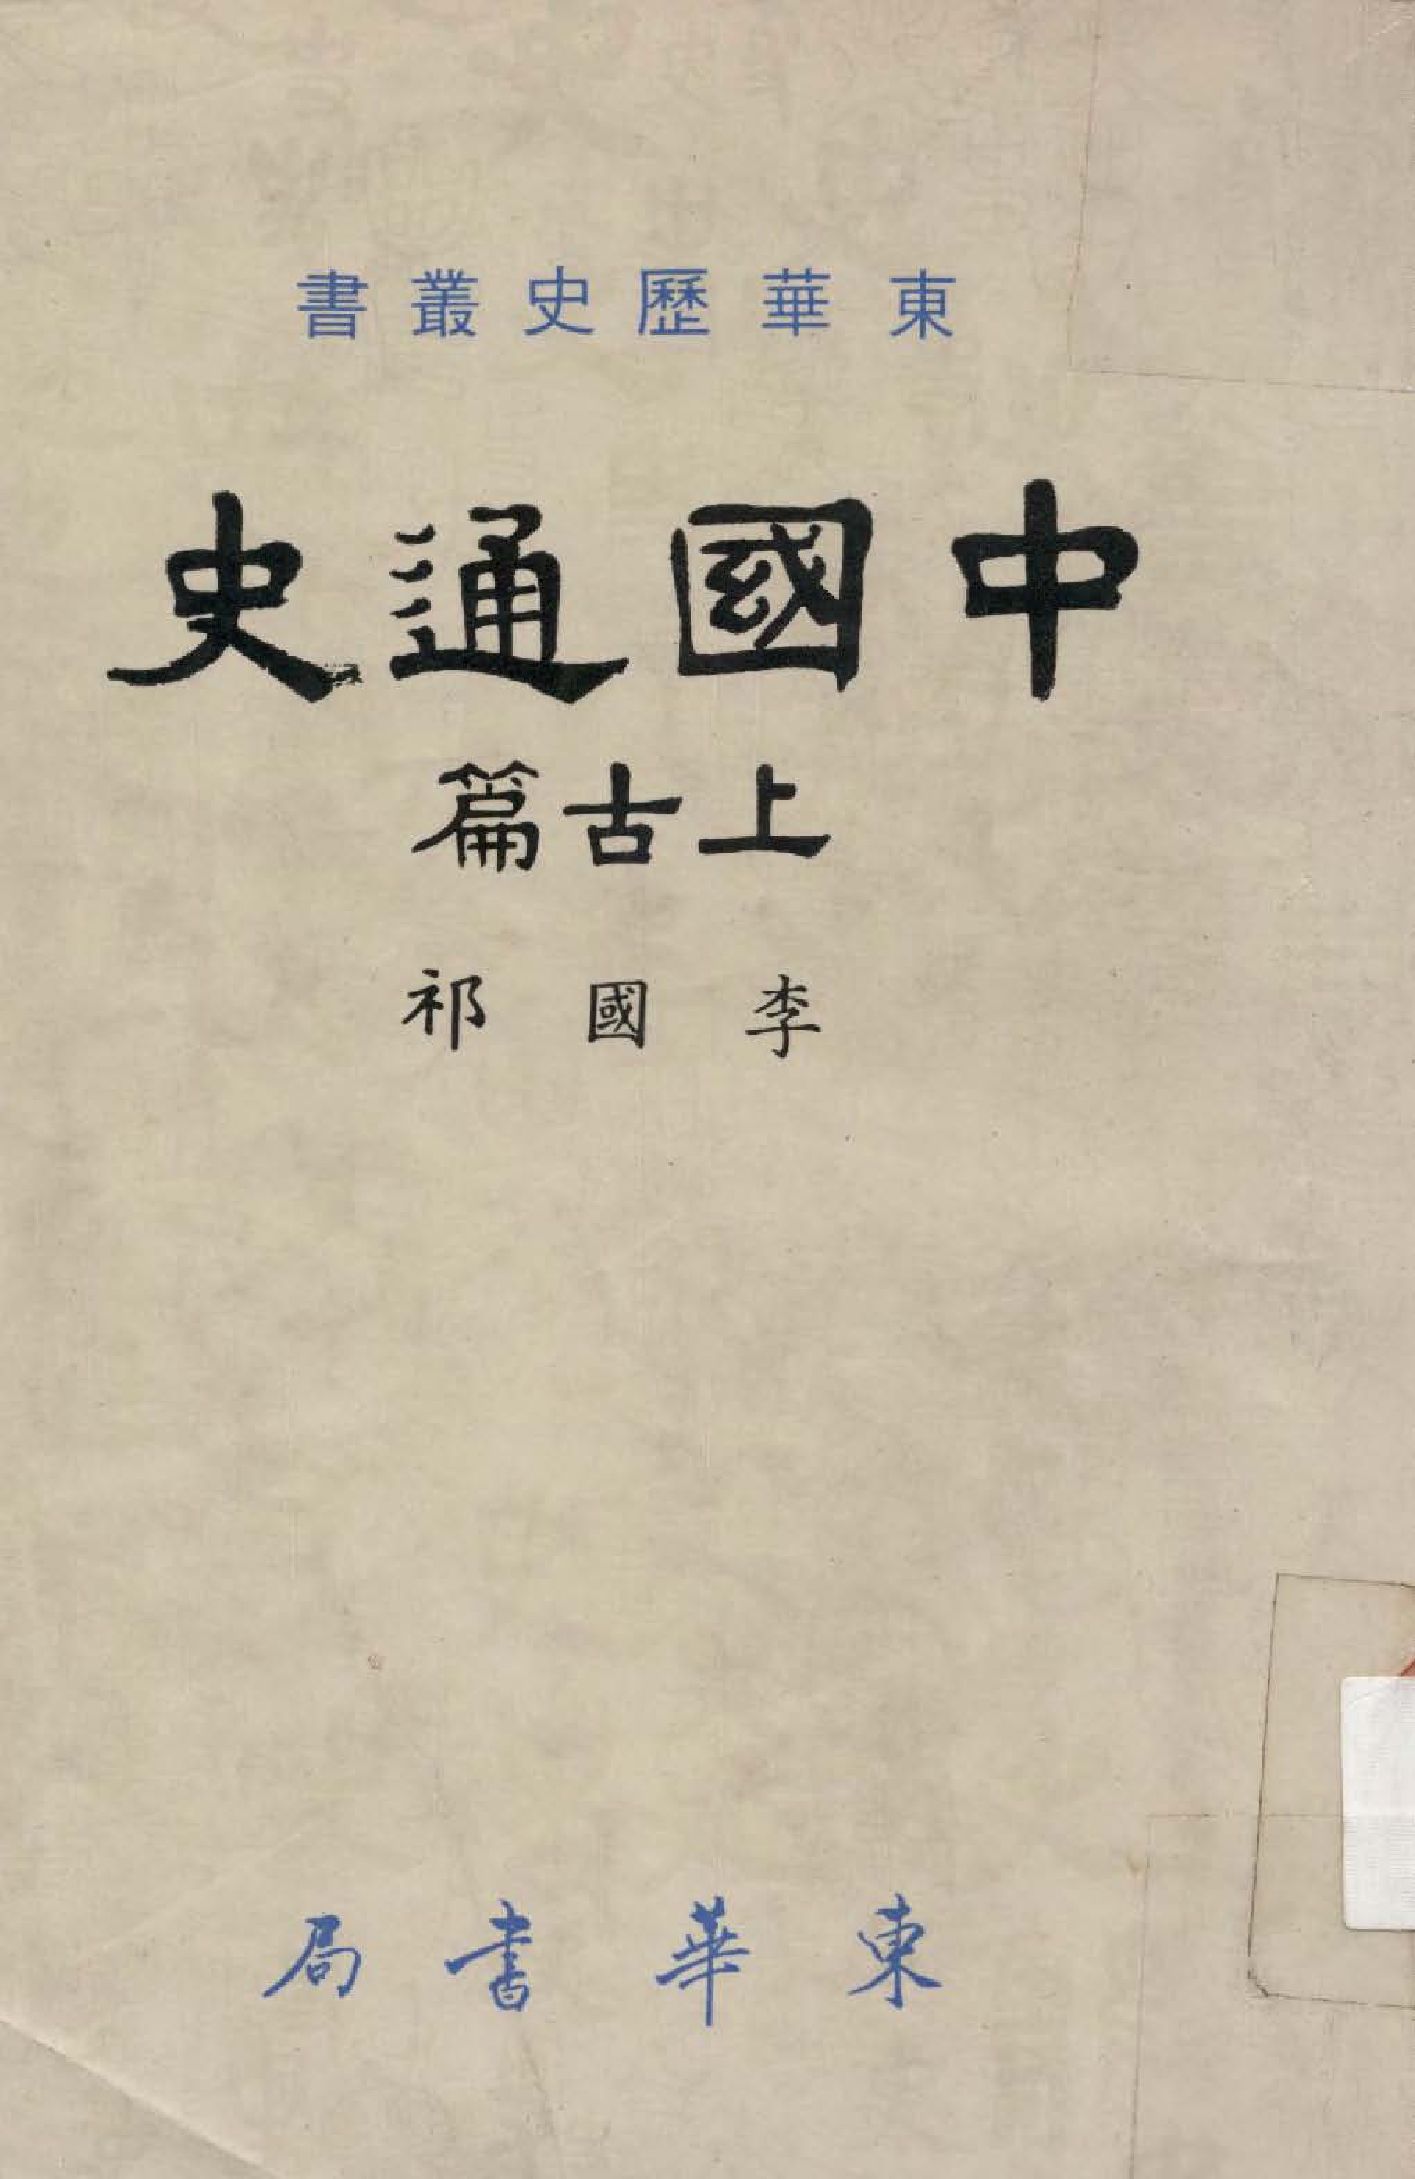 東華歷史叢書
中國通史
上古篇
李國祁
東華書局